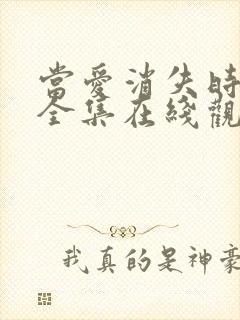 當愛消失時
全集在綫觀
我真的是神豪